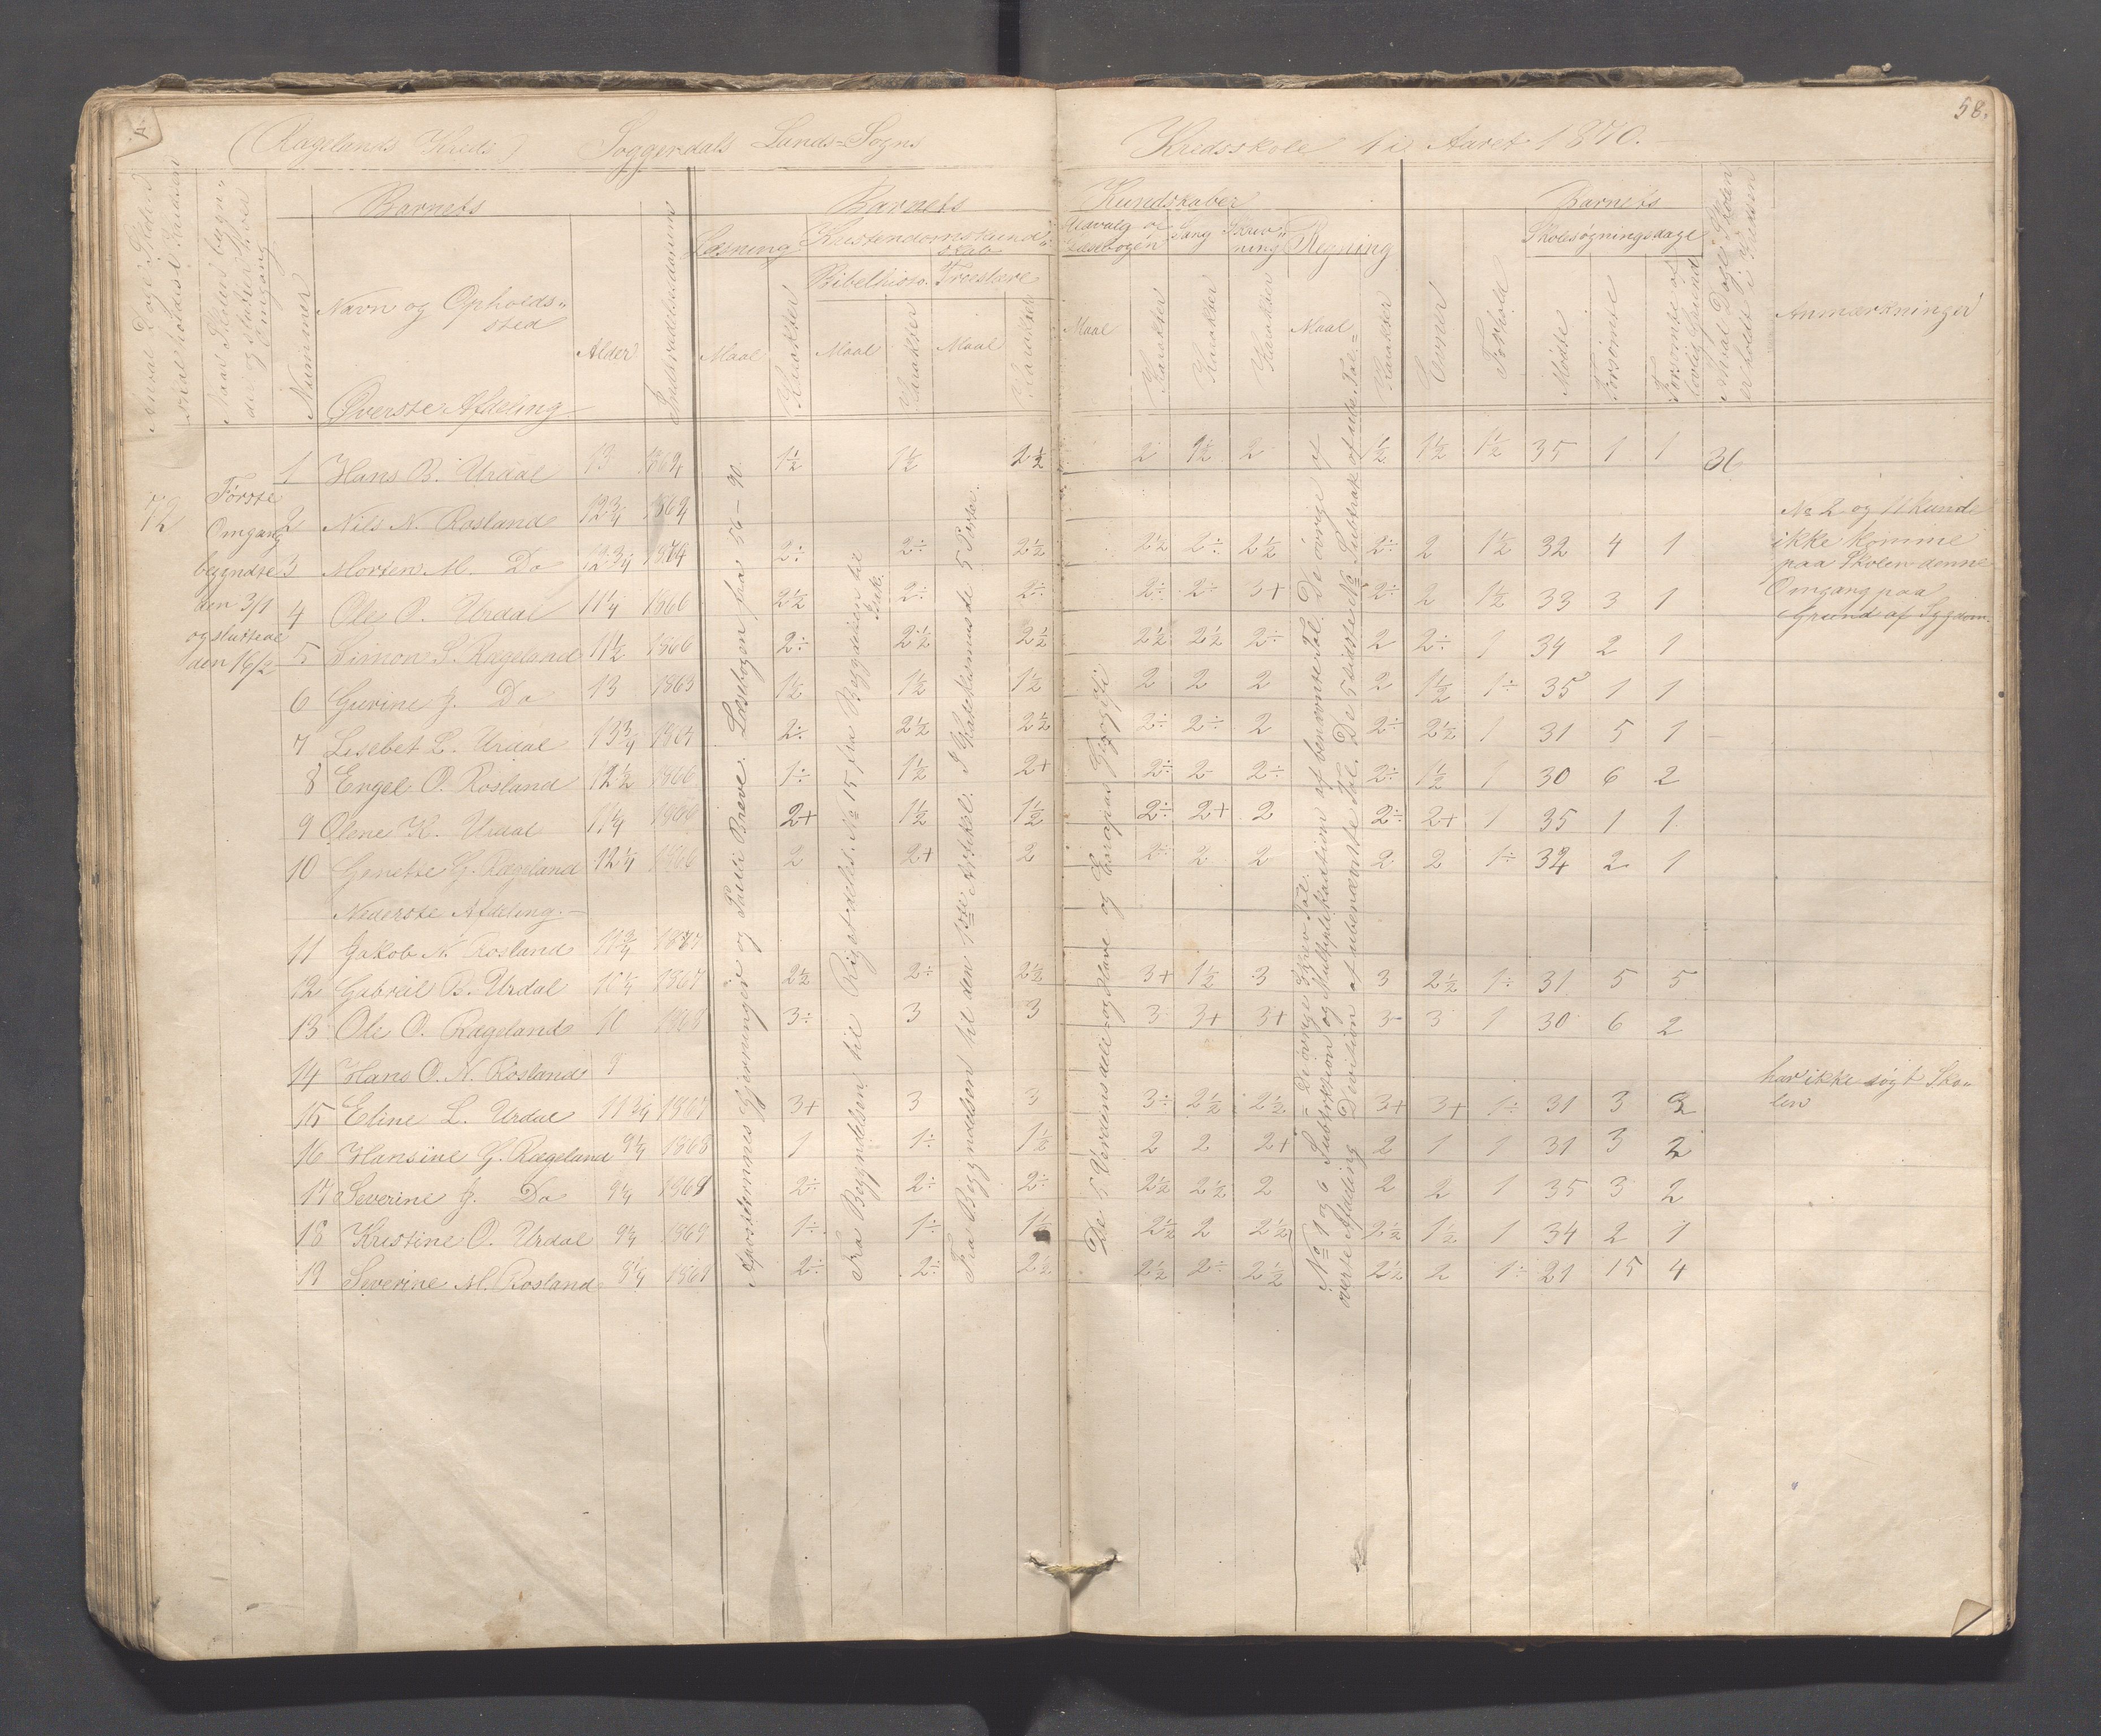 58.
(Rægelands Kreds) Soggendals Lunds-Sogns Kredsskole i Aaret 1870.
Barnets Barnets Kundskaber Barnets
Læsning Kristendomskundskab Udvalg af Læsebogen Sang Skrivning Regning Skolesøgningsdage
Bibelhisto. Troeslære
Nummer Navn og Opholdssted Alder Indtrædelsesdatum Maal Karakter Maal Karakter Maal Karakter Maal Karakter Karakter Karakter Maal Karakter Evner Forhold Mødte Forsømte Forsømte af lovlig Grund Anmærkninger
Øverste Afdeling
72
Første
Omgang
begyndte
den 3/1
og sluttede
den 16/2
1 Hans B. Urdal 13 1864 1½ 1½ 2½ 2 1½ 2 1½ 1½ 1½ 35 1 1 36
2 Nils N. Rosland 12¾ 1864
3 Morten M. Do 12¾ 1874 2÷ 2÷ 2½ 2½ 2÷ 2½ 2÷ 2 1½ 32 4 1
4 Ole O. Urdal 11¼ 1866 2½ 2÷ 2÷ 2÷ 2÷ 3+ 2÷ 2 1½ 33 3 1
5 Simon S. Rægeland 11½ 1866 2÷ 2½ 2½ 2½ 2½ 2÷ 2 2÷ 1 34 2 1
6 Gurine J. Do 13 1863 1½ 1½ 1½ 2 2 2 2 1½ 1÷ 35 1 1
7 Lisebet L. Urdal 13¾ 1867 2÷ 2½ 2½ 2÷ 2÷ 2 2÷ 2½ 1 31 5 1
8 Engel O. Rosland 12½ 1866 1÷ 1½ 2+ 2÷ 2 2÷ 2÷ 1½ 1 30 6 2
9 Olene K. Urdal 11¼ 1866 2+ 1½ 1½ 2÷ 2+ 2 2÷ 2+ 1 35 1 1
10 Gunette G. Rægeland 12¼ 1866 2 2+ 2 2÷ 2 2 2 2 1÷ 34 2 1
Nederste Afdeling.
11 Jakob N. Rosland 10¾ 1867
12 Gabriel B. Urdal 10¼ 1867 2½ 2÷ 2½ 3+ 1½ 3 3 2½ 1÷ 31 5 5
13 Ole O. Rægeland 10 1868 3÷ 3 3 3 3+ 3+ 3 3 1 30 6 2
14 Hans O. N. Rosland 8
15 Eline L. Urdal 11¾ 1867 3+ 3 3 3÷ 2½ 2½ 3+ 3+ 1÷ 31 3 3
16 Hansine G. Rægeland 9¼ 1868 1 1÷ 1½ 2 2 2+ 2 1 1 31 3 2
17 Severine J. Do 9¼ 1869 2÷ 2÷ 2÷ 2½ 2½ 2 2 2 1 35 3 2
18 Kristine O. Urdal 9¼ 1869 1÷ 1÷ 1½ 2½ 2 2½ 2½ 1½ 1 34 2 1
19 Severine M. Rosland 8¼ 1869 2÷ 2÷ 2½ 2½ 2÷ 2½ 2½ 2 1÷ 21 15 4
Apostlernes Gjerninger og Pauli Breve. Læsebogen fra 56-90.
Fra Begyndelsen til Rigets deling. No 15 fra Begyndelsen til
Fra Begyndelsen til den 1ste Artikel. I Katekismus de 5 Parter.
De 5 Verdensdele og Have og Europas Geografi
No 1 og 6 Subtraktion og Multiplikation af benævnte Tal. De øvrige af
øverste Afdeling Division af ubenævnte Tal. De 5 sidste No Subtrak. af ude. Tal. =
= De øvrige Skrev Tal.
No 2 og 11 kunde
ikke komme
paa Skolen denne
Omgang paa
Grund af Sygdom.
har ikke søgt Sko-
len